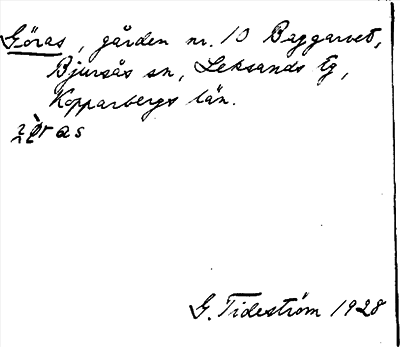 Göras, gården nr. 10 Baggarvet,
Bjursås sn, Leksands tg,
Kopparbergs län.
G. Tideström 1928